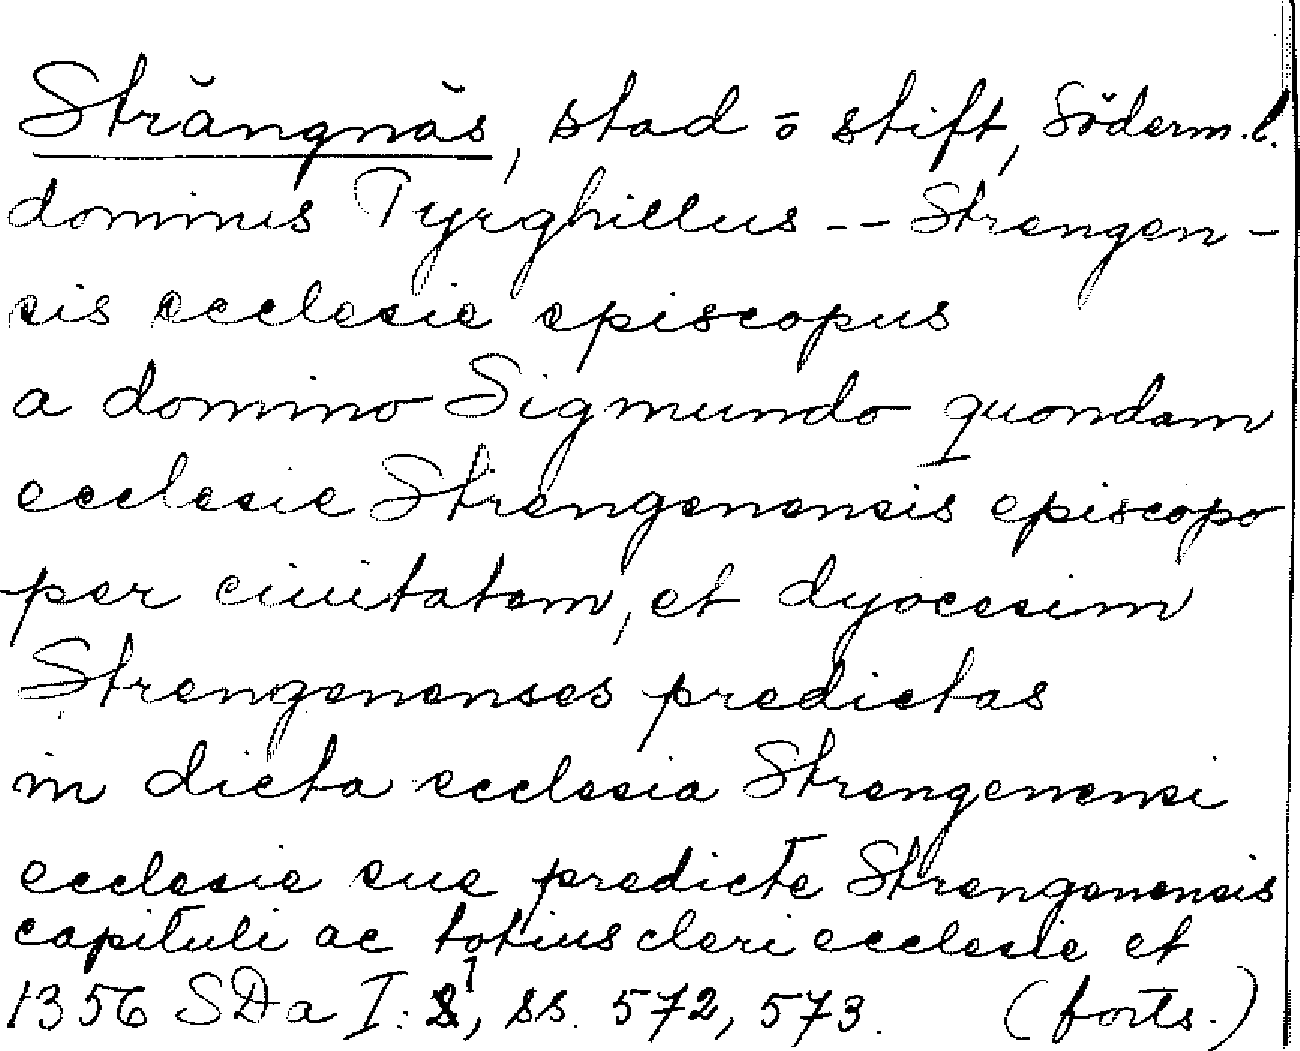 Strängnäs, stad o stift, Söderm.l.
dominus Tyrghillus -- Strengen-
sis ecclesie episcopus
a domino Sigmundo quondam
ecclesie Strengenensis episcopo
per ciuitatem, et dyocesim
Strengenenses predictas
in dicta ecclesia Strengenensi
ecclesie sue predicte Strengenensis
capituli ac totius cleri ecclesie et
1356 SD a I: 1, ss. 572, 573. (forts.)